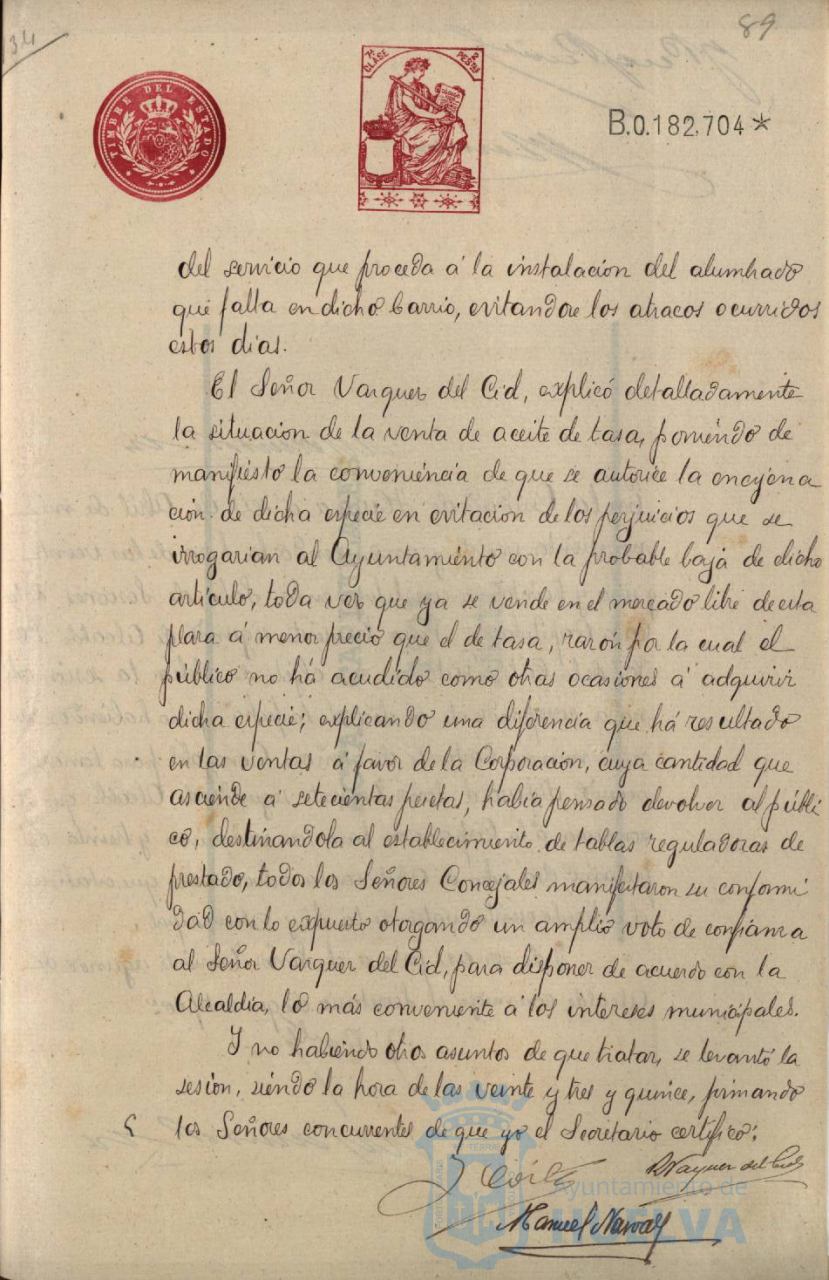 34
89
TIMBRE DEL ESTADO
7ª CLASE
2 PESETAS
B.0.182,704*
del servicio que proceda á la instalación del alumbrado
que falta en dicho barrio, evitandose los atracos ocurridos
estos dias.
El Señor Vazquez del Cid, explicó detalladamente
la situacion de la venta de aceite de tasa, poniendo de
manifiesto la conveniencia de que se autorice la enagena
ción de dicha especie en evitacion de los perjuicios que se
irrogarian al Ayuntamiento con la probable baja de dicho
articulo, toda vez que ya se vende en el mercado libre de esta
plaza á menor precio que el de tasa, razón por la cual el
público no há acudido como otras ocasiones á adquirir
dicha especie; explicando una diferencia que há resultado
en las ventas á favor de la Corporación, cuya cantidad que
asciende á setecientas pesetas, habia pensado devolver al públi
co, destinandola al establecimiento de tablas reguladoras de
prestado, todos los Señores Concejales manifestaron su conformi
dad con lo expuesto otorgando un amplio voto de confianza
al Señor Vazquez del Cid, para disponer de acuerdo con la
Alcaldia, lo más conveniente á los intereses municipales.
Y no habiendo otros asuntos de que tratar, se levantó la
sesión, siendo la hora de las veinte y tres y quince, firmando
los Señores concurrentes de que yo el Secretario certifico:
Vazquez del Cid
Manuel Narvaez
Ayuntamiento de
HUELVA